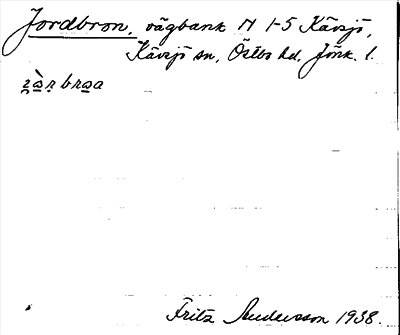 Jordbron, vägbank N 1-5 Kävsjö,
Kävsjö sn, Östbo hd, Jönk. l.
Fritz Andersson 1938.